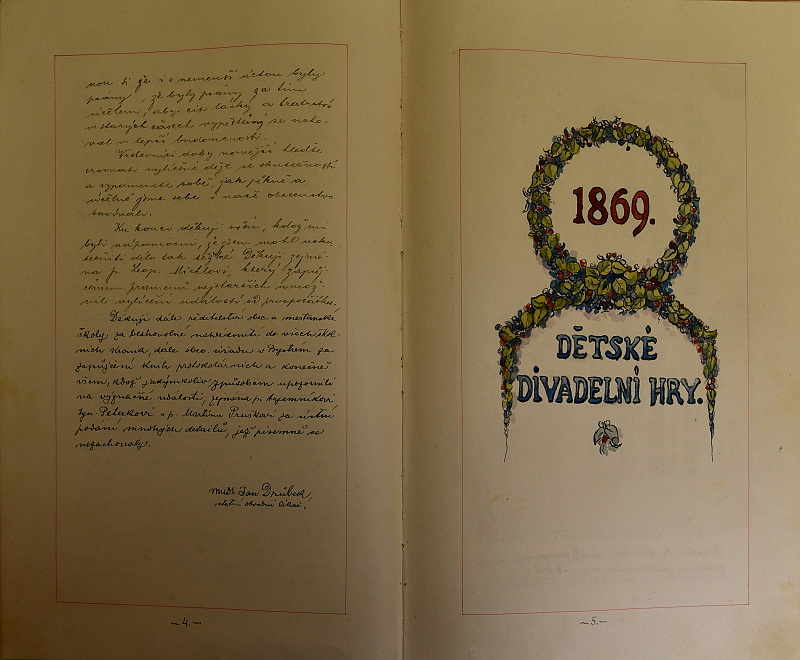 nou ti že i s nemenší úctou byly
psány, že byly psány za tím
účelem, aby cit lásky a bratrství
v starých časech vypěstěný se zacho-
val v lepší budoucnosti.
Vrstevníci doby novější hleďte
srovnati vylíčené děje se skutečností
a vzpomenete sobě, jak pěkně a
účelně jsme sebe i naše obecenstvo
bavívali.
Ku konci děkuji všem, kdož mi
byli nápomocni, že jsem mohl usku-
tečniti dílo tak Děkuji zejmé-
na p. Leop. Michlovi, který zapůj-
čením pramenů nejstarších umož-
nil vylíčení událostí od prvopočátku.
Děkuji dále ředitelství obec. a měšťanské
školy za blahovolné nahlédnutí do všech škol-
ních kronik, dále obec. úřadu v Bystrém za
zapůjčení knih protokolárních a konečně
všem, kdož jakýmkoliv způsobem upozornili
na význačné události, zejména p. tajemníkovi
Peterkovi a p. Martinu Pruškovi za ústní
podání mnohých detailů, jež písemně se
nezachovaly.
MUDr Jan Drábek,
státní obvodní lékař.
-4.-
1869.
DĚTSKÉ
DIVADELNÍ HRY.
-5.-